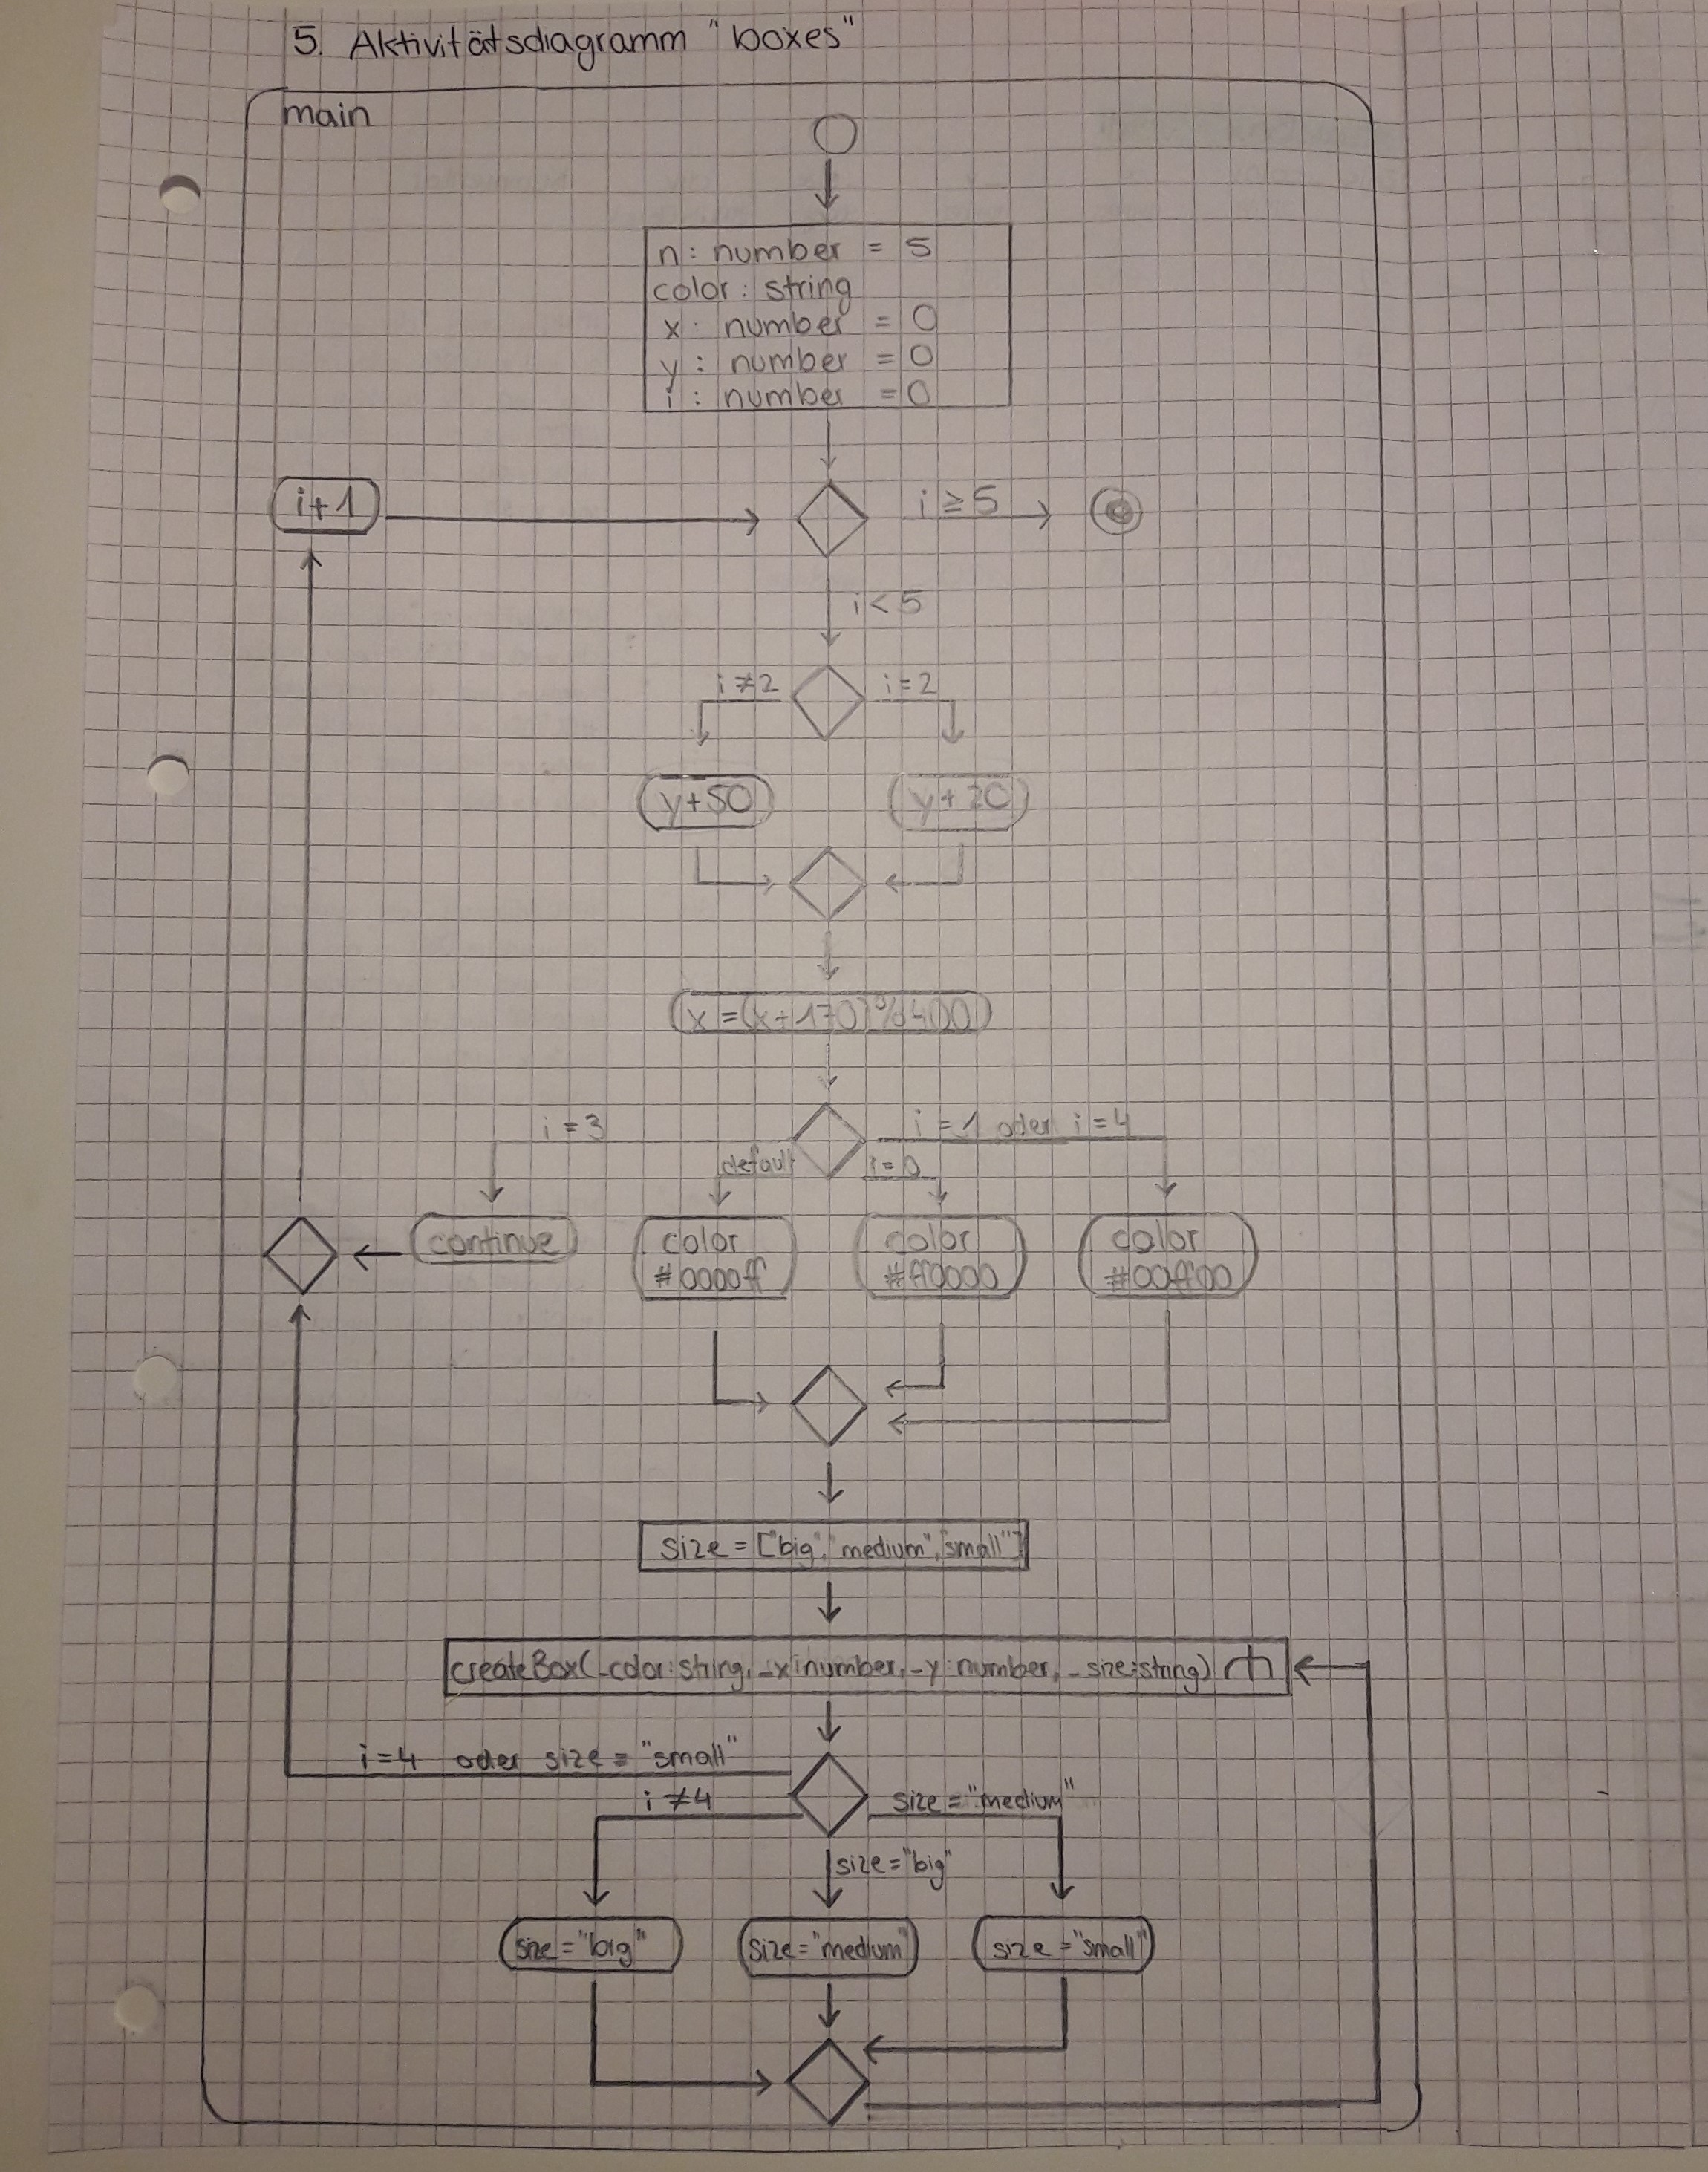 5. Aktivitätsdiagramm "boxes"
main
n: number = 5
color: string
x: number = 0
y: number = 0
i: number = 0
i+1
i ≥ 5
i < 5
i ≠ 2
i = 2
y+50
y+20
x = (x+170)%400
i = 3
i = 1 oder i = 4
default
i = 0
continue
color
#0000ff
color
#ff0000
color
#00ff00
size = ["big", "medium", "small"]
createBox(_color: string, _x: number, _y: number, _size: string)
i = 4 oder size = "small"
i ≠ 4
size = "medium"
size = "big"
size = "big"
size = "medium"
size = "small"